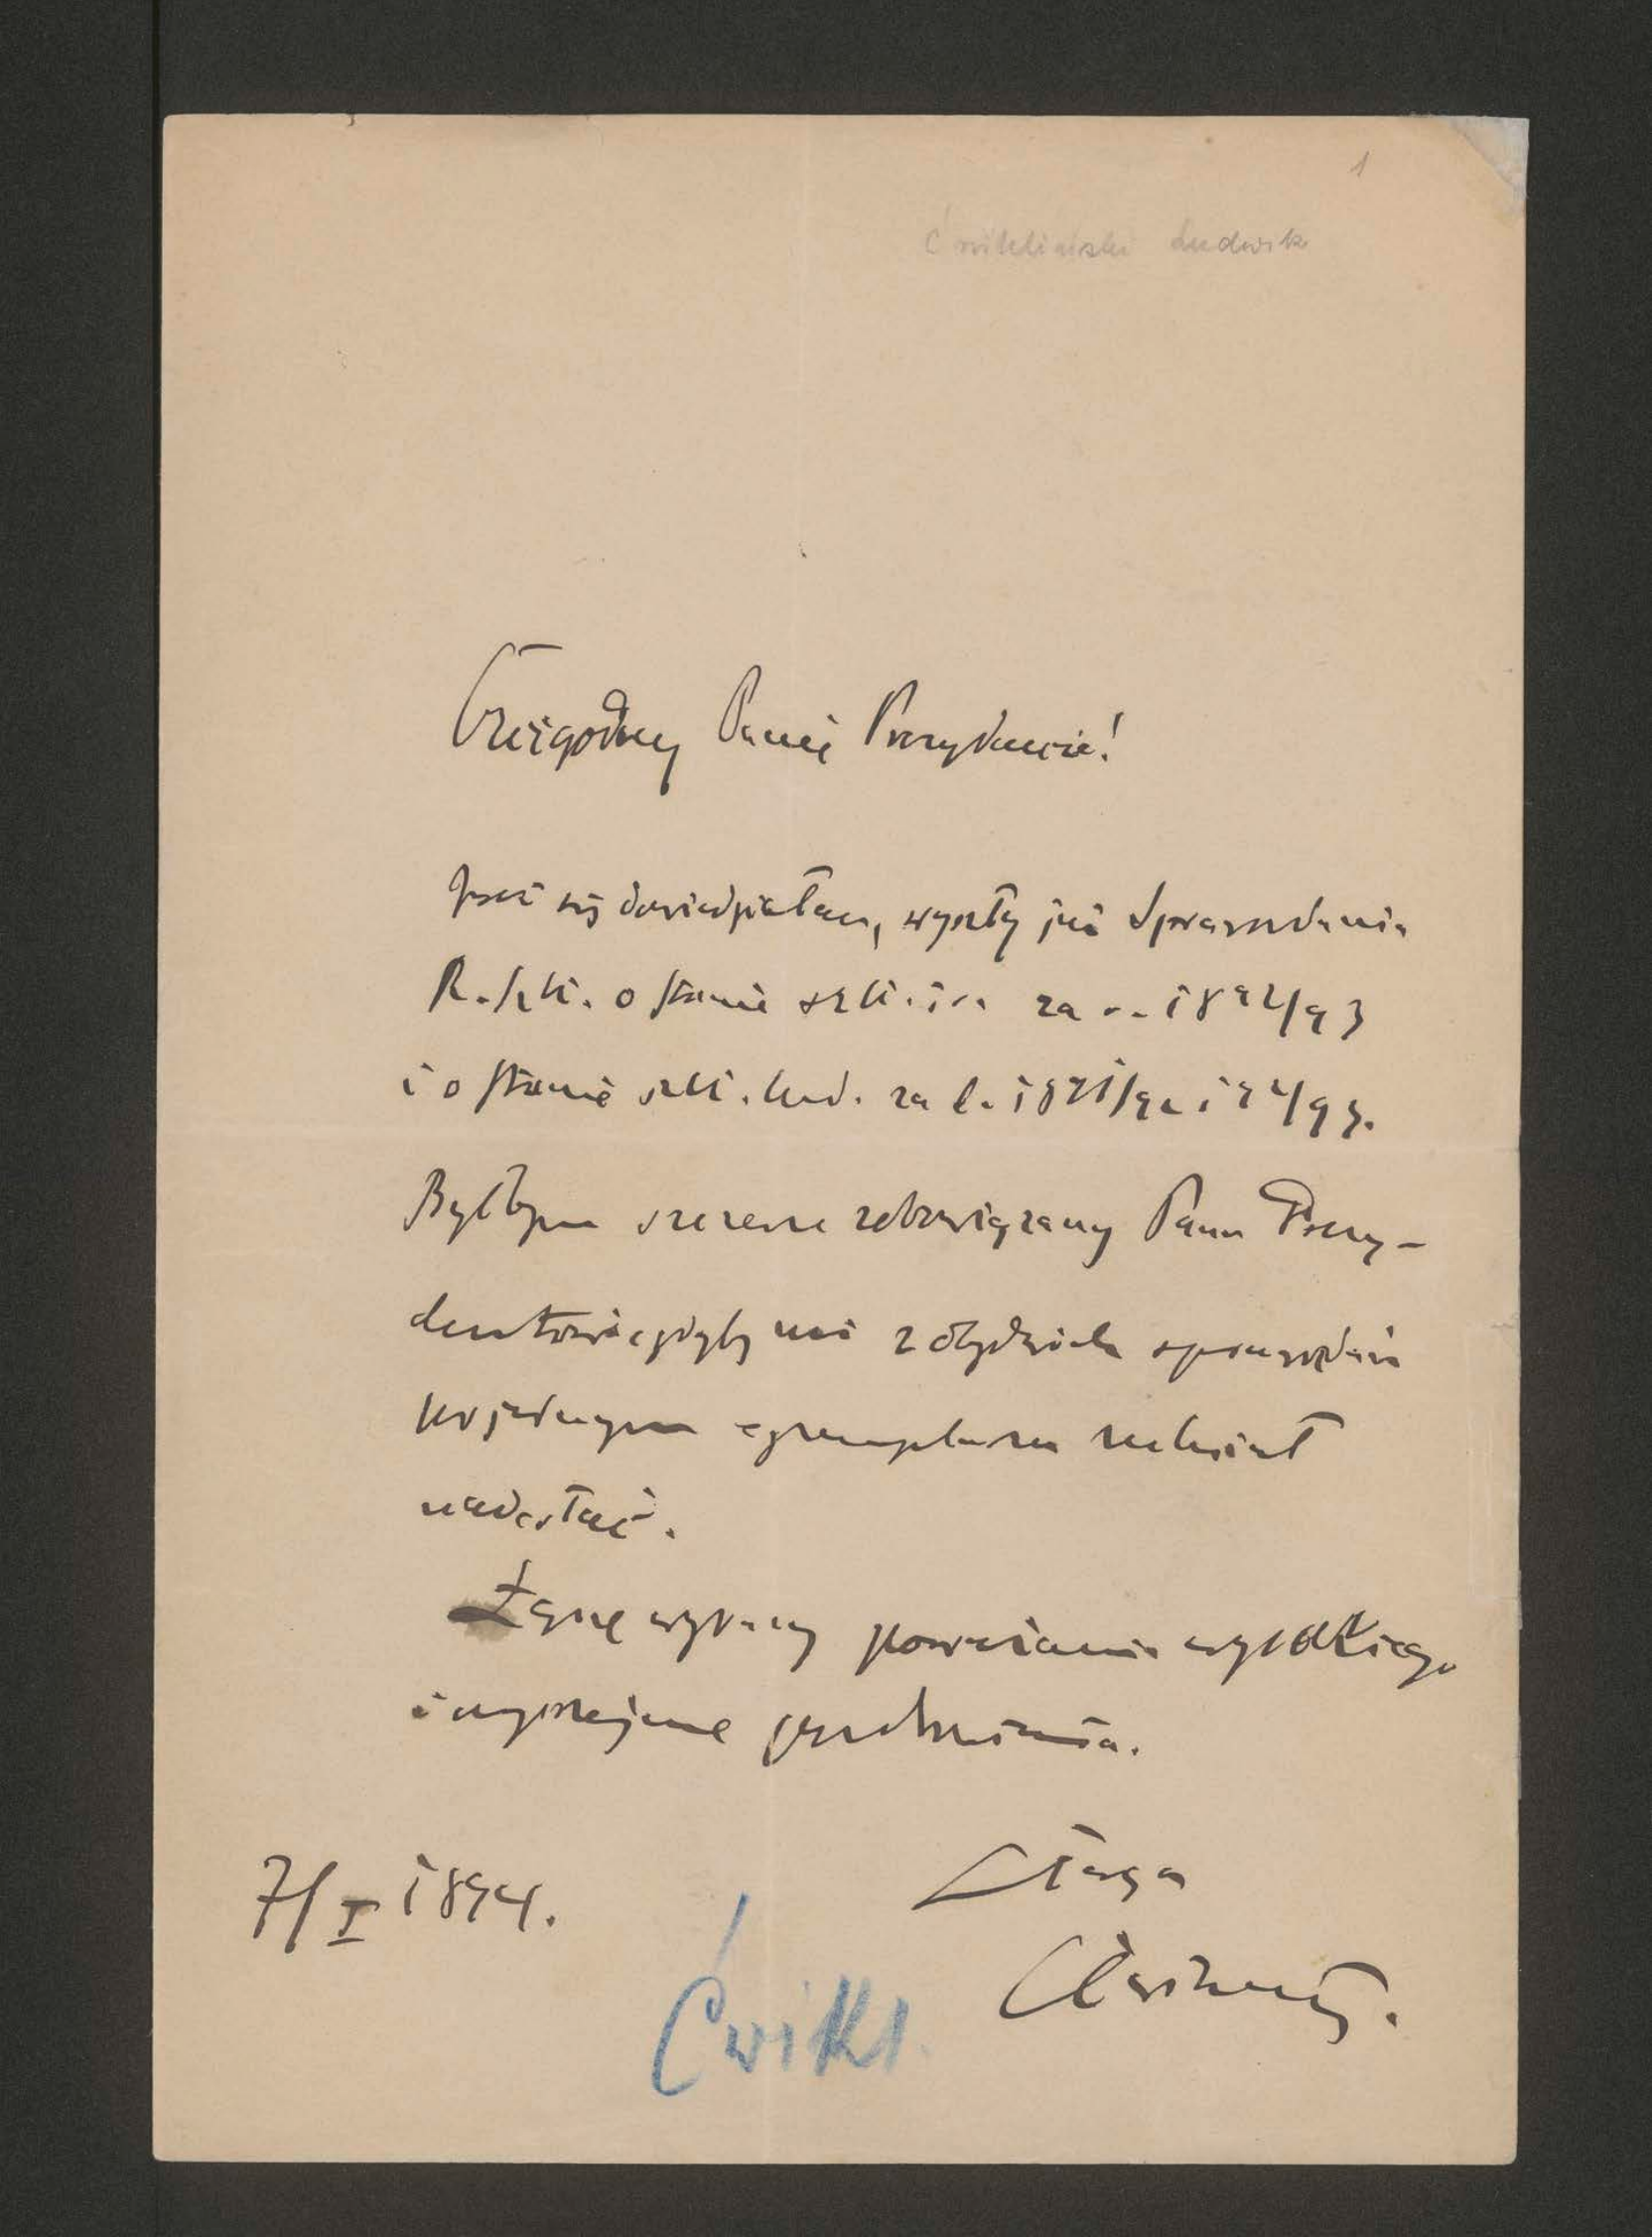 1
Ćwikliński Ludwik
Czcigodny Panie Prezydencie!
się dowiedziałem, wyszły już Sprawozdania
R. szk. o stanie szk. za r. 1892/93
i o stanie szk. lud. za l. 1891/92 i 92/93.
Byłbym szczerze zobowiązany Panu Prezy-
dentowi gdyby mi z obydwóch sprawozdań
po jednym egzemplarzu zechciał
nadesłać.
Łączę wyrazy poważania wysokiego
i uprzejme pozdrowienia.
Sługa
7/I 1894.
Ćwikliński.
Ćwikl.